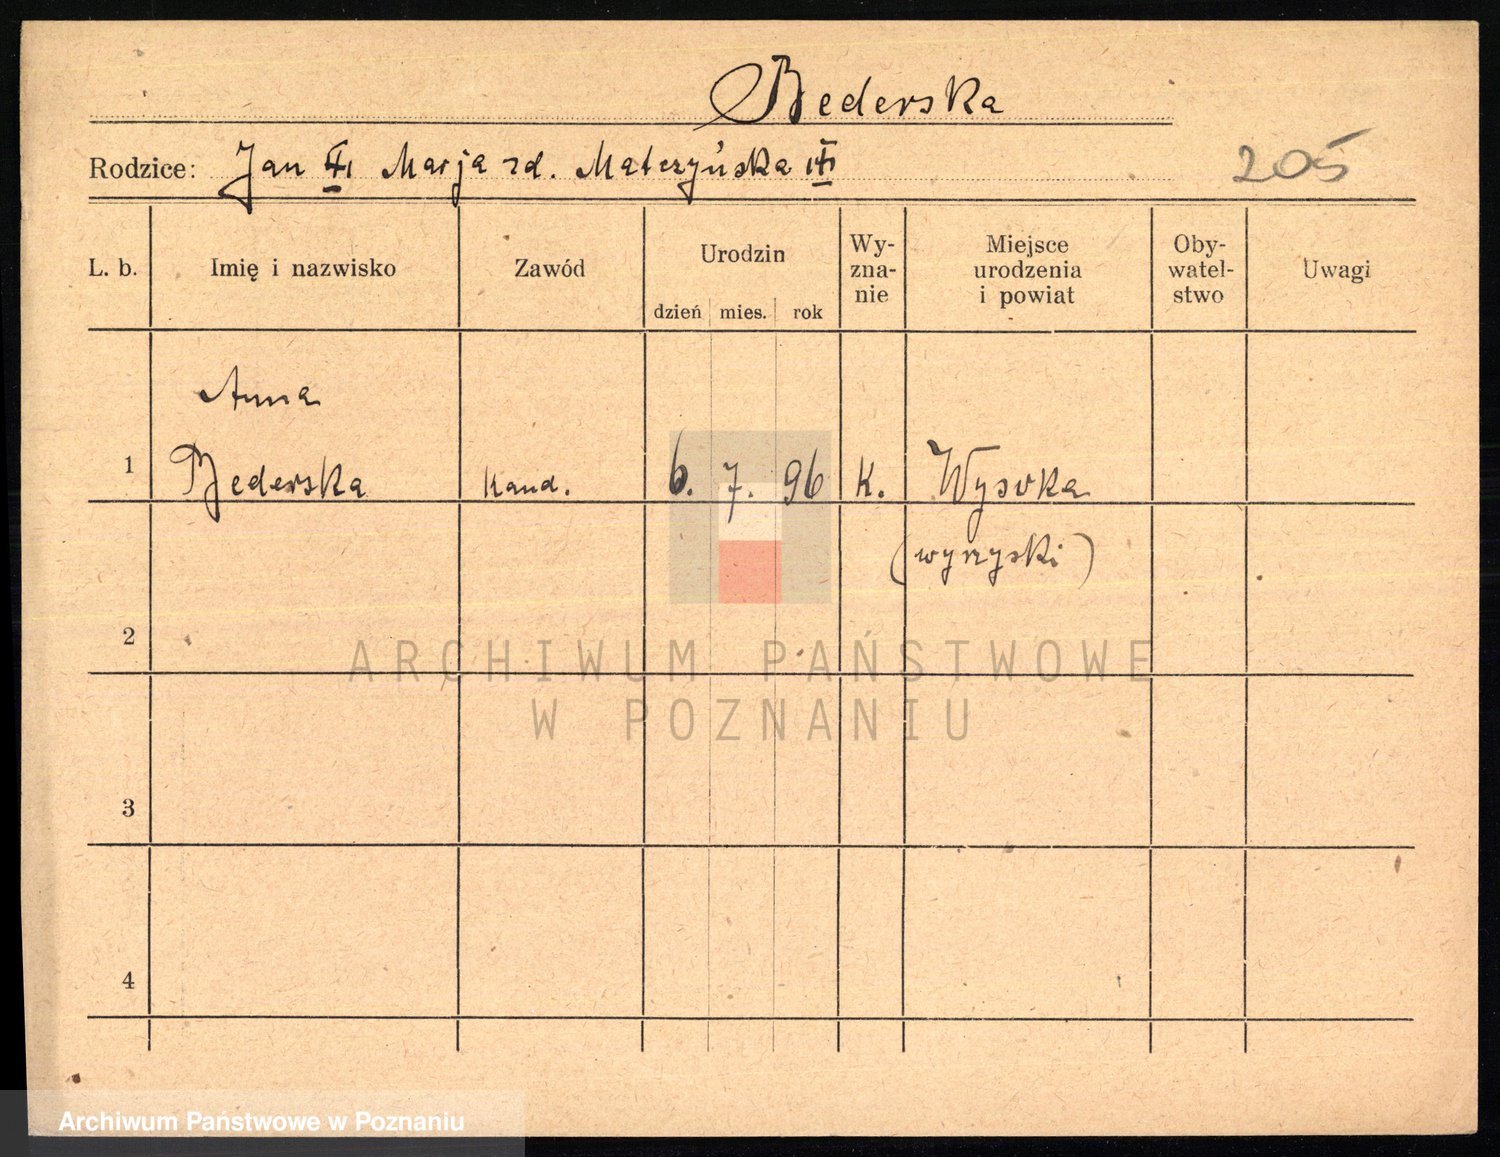 Bederska
Rodzice: Jan Marja zd. Matczyńska
205
L. b. Imię i nazwisko Zawód Urodzin Wy- zna- nie Miejsce urodzenia i powiat Oby- watel- stwo Uwagi
dzień mies. rok
Anna
1 Bederska kand. 6. 7. 96 k. Wysoka
(wyrzyski)
2
ARCHIWUM PAŃSTWOWE
W POZNANIU
3
4
Archiwum Państwowe w Poznaniu